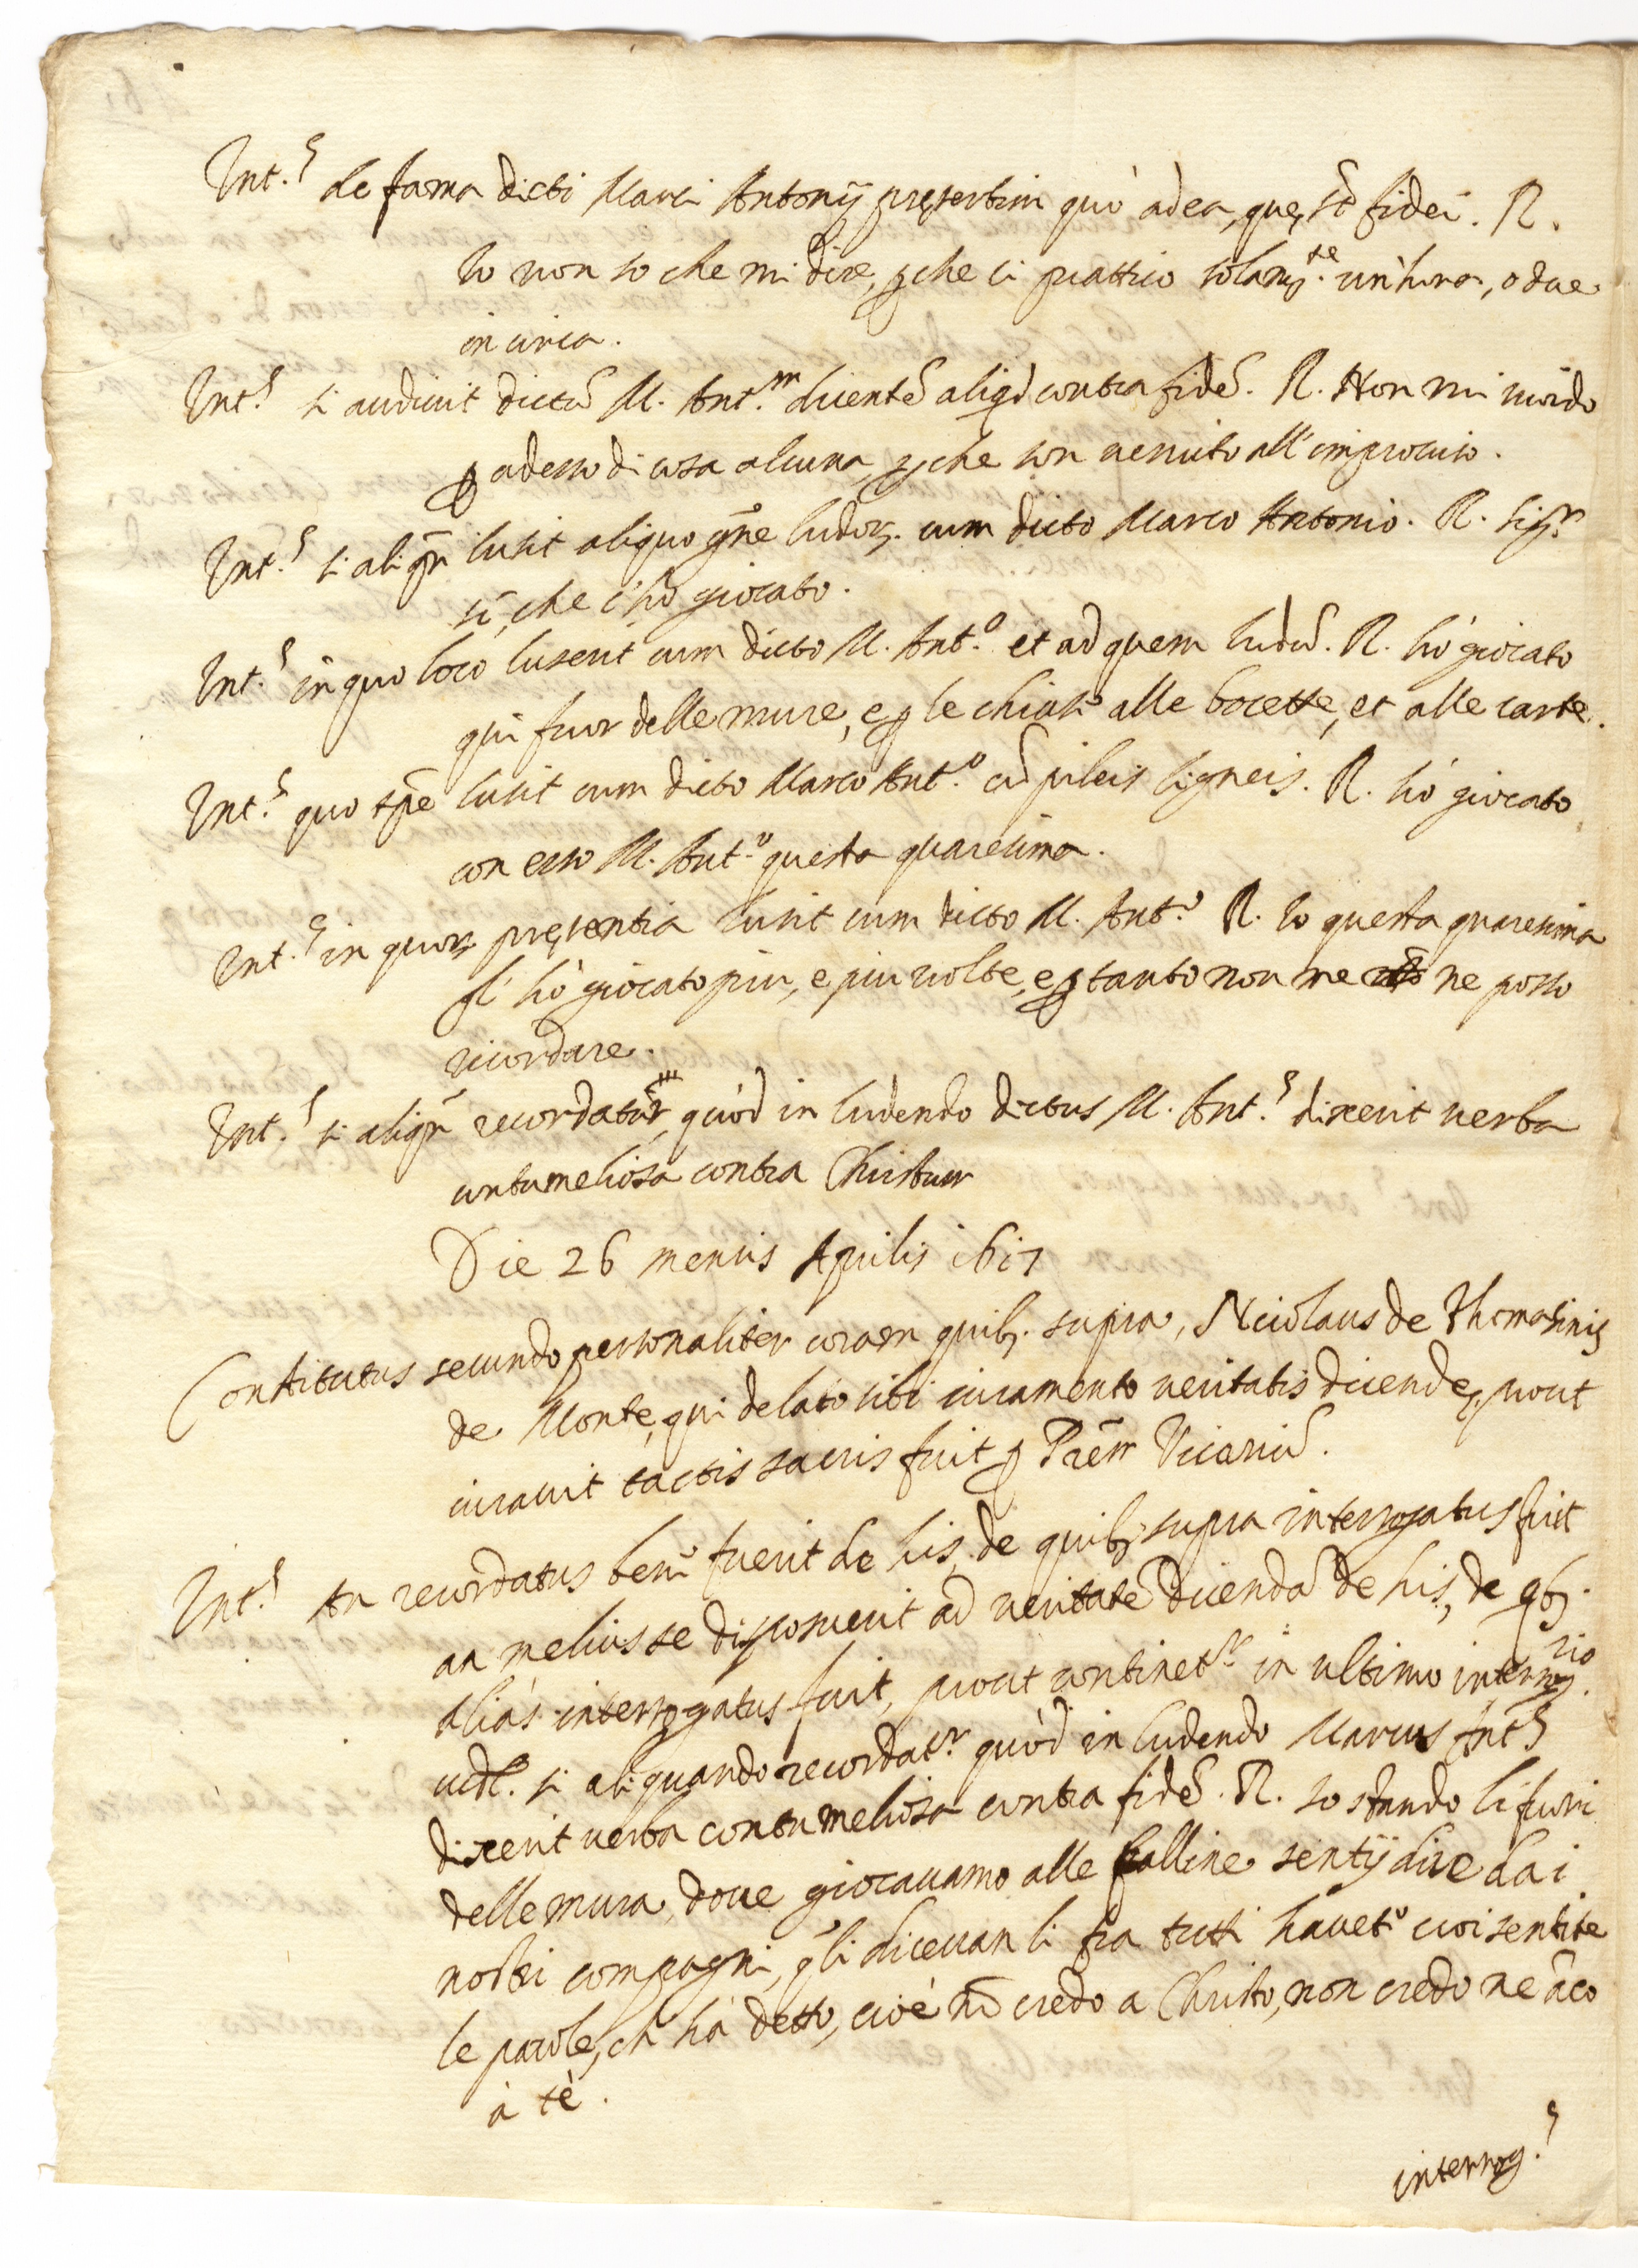 Int.s de fama dicti Marci Antonij pręsertim quò ad ea, quę st fidei. R.
Io non so che mi dire, p che li prattico solam.te un'hora, o due
in circa.
Int.s si audivit dictũ M. Ant.m dicentẽ aliqd contra fidẽ. R. Non mi ricordo
p adesso di cosa alcuna, p che son venuto all'improviso.
Int.s si aliqñ lusit aliquo gñe ludor. cum dicto Marco Antonio. R. Sig.r
sì, che c'ho giocato.
Int.s in quo loco luserit cum dicto M. Ant.o et ad quem ludũ. R. hò giocato
qui fuor delle mure, e p le chiusi alle bocette, et alle carte.
Int.s quo tpe lusit cum dicto Marco Ant.o cũ pileis ligneis. R. hò giocato
con esso M. Ant.o questa quaresima.
Int.s in quor. pręsentia lusit cum dicto M. Ant.o R. Io questa quaresima
gl' hò giocato piu, e piu volte, e p tanto non me ne posso
ricordare.
Int.s si aliqñ recordatur, quòd in ludendo dictus M. Ant.s dixerit verba
contumeliosa contra Christum
Die 26 mensis Aprilis 1617
Constitutus secundo personaliter coram quib. supra, Nicolaus de Thomasinis
de Monte, qui delato sibi iuramento veritatis dicendę, prout
iuravit tactis sacris fuit p Prẽm Vicariũ.
Int.s An recordatus benè fuerit de his, de quib. supra interrogatus fuit
an melius se disposuerit ad veritatẽ dicendã de his, de qb.
aliàs interrogatus fuit, prout continet.r in ultimo interrog.rio
vidl. si aliquando recordat.r quòd in ludendo Marcus Ant.s
dixerit verba contumeliosa contra fidẽ. R. Io stando lì fuori
delle mura, dove giocavamo alle balline sentij dire da i
nostri compagni, qli dicevan li fra tutti havetè voi sentite
le parole, ch hà detto, cioè nõ credo a Christo, non credo ne ãco
à tè.
interrog.s